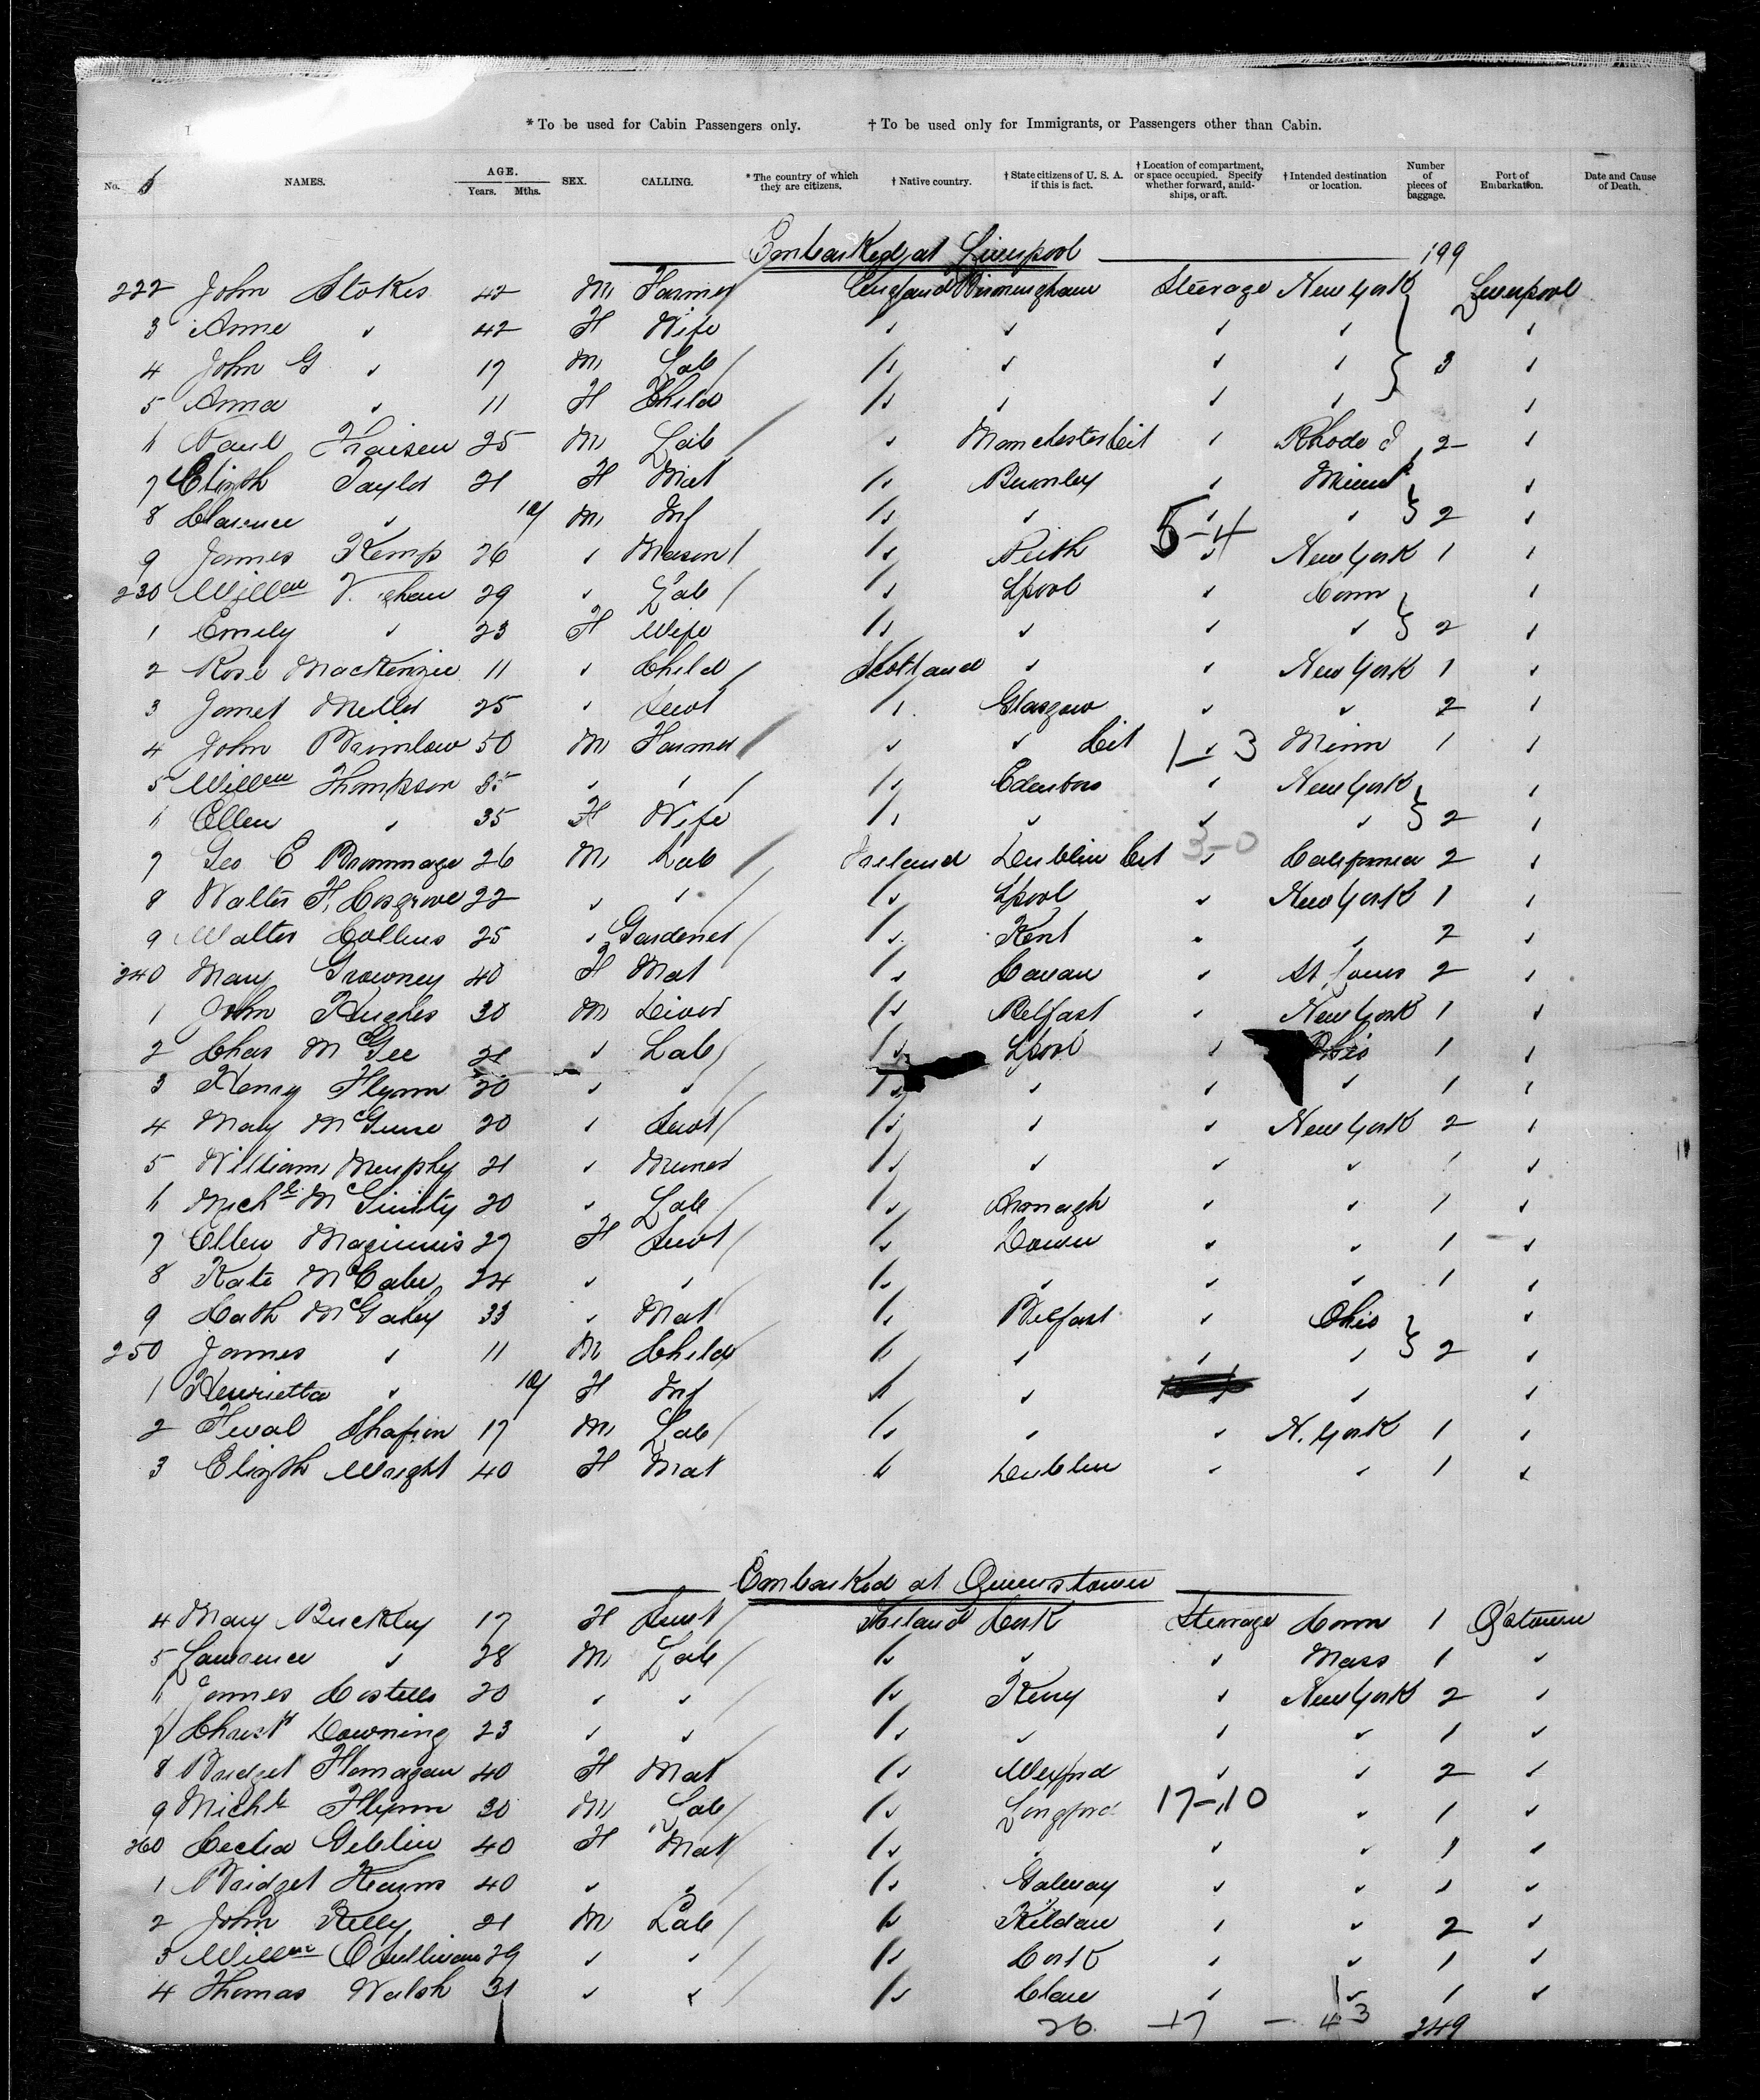 * To be used for Cabin Passengers only. † To be used only for Immigrants, or Passengers other than Cabin.
No. 6 NAMES. AGE. Years. Mths. SEX. CALLING. * The country of which they are citizens. † Native country. † State citizens of U. S. A. if this is fact. † Location of compartment, or space occupied. Specify whether forward, amidships, or aft. † Intended destination or location. Number of pieces of baggage. Port of Embarkation. Date and Cause of Death.
Embarked at Liverpool 199
222 John Stokes 42 M Farmer England Birmingham Steerage New York Liverpool
3 Anne " 42 F Wife " " " " "
4 John G " 17 M Lab " " " " 3 "
5 Anna " 11 F Child " " " " "
6 Paul 25 M Lab " Manchester Cit " Rhode I 2 "
7 Elizth Taylor 21 F Mat " Burnley " "
8 Clarence " 10/ M Inf " " " " 2 "
5-4
9 James Kemp 26 " Mason " Perth " New York 1 "
230 Willm 29 " Lab " Lpool " Conn "
1 Emily " 23 F Wife " " " " 2 "
2 Rose MacKenzie 11 " Child Scotland " " New York 1 "
3 Janet 25 " Servt " Glasgow " " 2 "
4 John 50 M Farmer " " Cit " Minn 1 "
1 3
5 Willm Thompson 35 " " " Edinboro " New York "
6 Ellen " 35 F Wife " " " " 2 "
7 Geo E 26 M Lab Ireland Dublin Cit " California 2 "
3-0
8 Walter H. Cosgrove 22 " " " Lpool " New York 1 "
9 Walter Collins 25 " Gardener " Kent " " 2 "
240 Mary Growney 40 F Mat " Cavan " St Louis 2 "
1 John Hughes 30 M " Belfast " New York 1 "
2 Chas McGee 21 " Lab " Lpool " Ohio 1 "
3 Henry Flynn 20 " " " " " " 1 "
4 Mary 20 " Servt " " " New York 2 "
5 William Murphy 21 " Miner " " " " 1 "
6 Michl McGinity 20 " Lab " Armagh " " 1 "
7 Ellen Maginnis 27 F Servt " Down " " 1 "
8 Kate McCabe 24 " " " " " " 1 "
9 Cath McGahey 33 " Mat " Belfast " Ohio "
250 James " 11 M Child " " " " 2 "
1 Henrietta " 10/ F Inf " " " "
2 17 M Lab " " " N. York 1 "
3 Elizth Wright 40 F Mat " Dublin " " 1 "
Embarked at Queenstown
4 Mary Buckley 17 F Servt Ireland Cork Steerage Conn 1 Q'stown
5 Lawrence " 28 M Lab " " " Mass 1 "
6 James Costello 20 " " " Kerry " New York 2 "
7 Christr Downing 23 " " " " " " 1 "
8 Bridget Flanagan 40 F Mat " Wexford " " 2 "
9 Michl Flynn 30 M Lab " Longford " 1 "
17-10
260 Cecha Giblin 40 F Mat " " " " 1 "
1 Bridget Kearns 40 " " " Galway " " 1 "
2 John Kelly 21 M Lab " Kildare " " 2 "
3 Willm O'Sullivan 29 " " " Cork " " 1 "
4 Thomas Walsh 31 " " " Clare " " 1 "
26 - 17 - 43 249